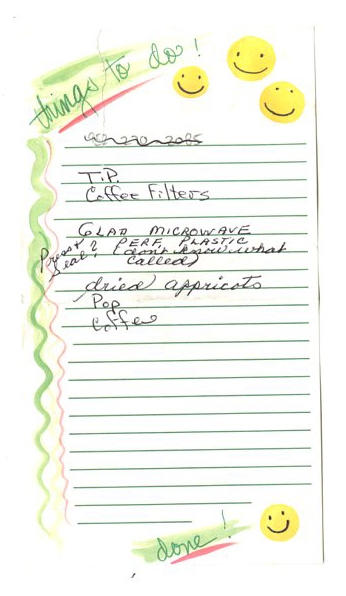 things to do!
T.P.
Coffee Filters
GLAD MICROWAVE
Press + PERF PLASTIC
Seal? (don't know what
called)
dried appricots
Pop
Coffee
done!